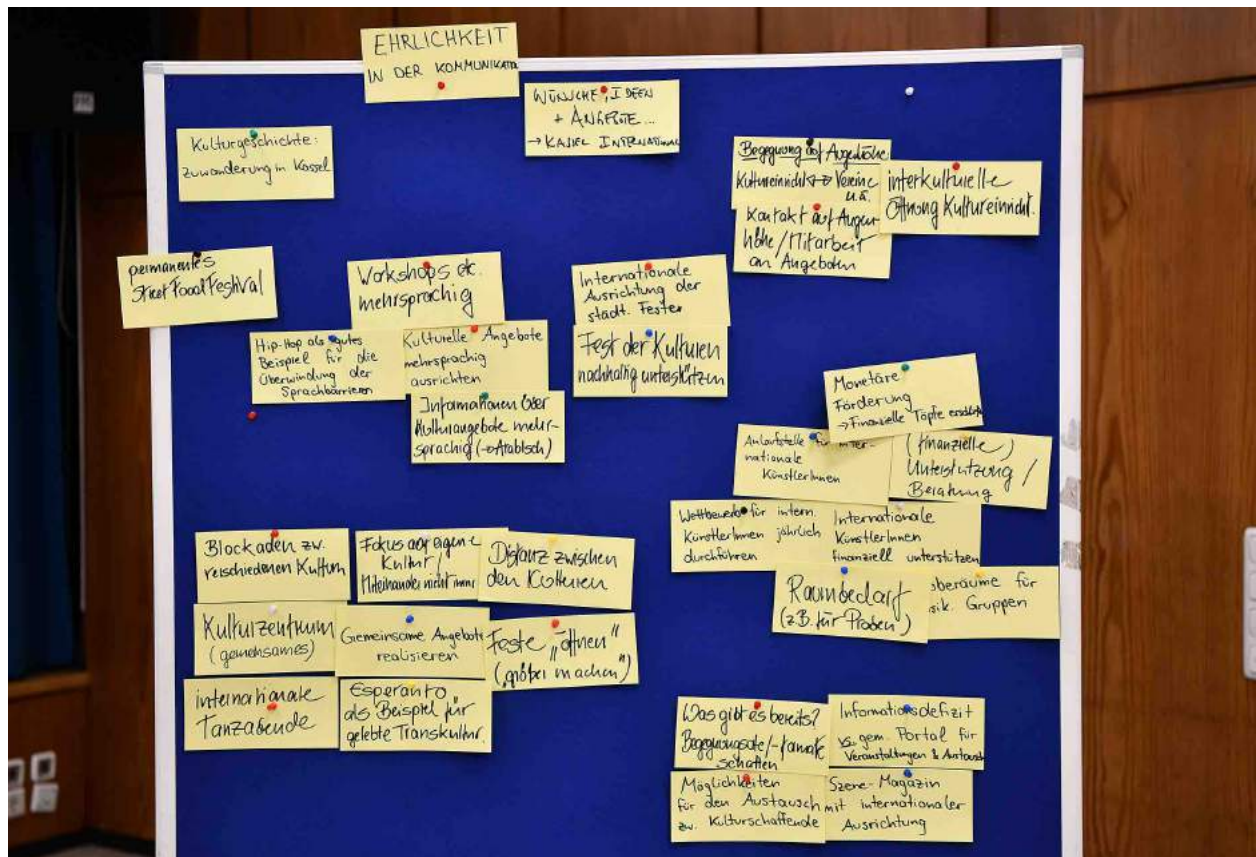 EHRLICHKEIT
IN DER KOMMUNIKATION
WÜNSCHE, IDEEN
+ ANGEBOTE...
→ KASSEL INTERNATIONAL
Kulturgeschichte:
Zuwanderung in Kassel
Begegnung auf Augenhöhe
Kultureinricht. ↔ Vereine
u.a.
Kontakt auf Augen-
höhe/Mitarbeit
an Angeboten
interkulturelle
Öffnung Kultureinricht.
permanentes
Street Food Festival
Workshops etc.
mehrsprachig
Hip-Hop als gutes
Beispiel für die
Überwindung der
Sprachbarrieren
Kulturelle Angebote
mehrsprachig
ausrichten
Informationen über
Kulturangebote mehr-
sprachig (→ Arabisch)
Internationale
Ausrichtung der
städt. Feste
Fest der Kulturen
nachhaltig unterstützen
Monetäre
Förderung
→ Finanzielle Töpfe
Anlaufstelle für inter-
nationale
KünstlerInnen
(finanzielle)
Unterstützung /
Beratung
Wettbewerb für intern.
KünstlerInnen jährlich
durchführen
Internationale
KünstlerInnen
finanziell unterstützen
Raumbedarf
(z.B. für Proben)
oberäume für
sik. Gruppen
Blockaden zw.
verschiedenen Kulturen
Fokus auf eigene
Kultur /
Miteinander nicht immer
Distanz zwischen
den Kulturen
Kulturzentrum
(gemeinsames)
Gemeinsame Angebote
realisieren
Feste „öffnen"
(„größer machen")
internationale
Tanzabende
Esperanto
als Beispiel für
gelebte Transkultur.
Was gibt es bereits?
Begegnungsorte/-formate
schaffen
Informationsdefizit
vs. gem. Portal für
Veranstaltungen & Austausch
Möglichkeiten
für den Austausch
zw. Kulturschaffende
Szene-Magazin
mit internationaler
Ausrichtung